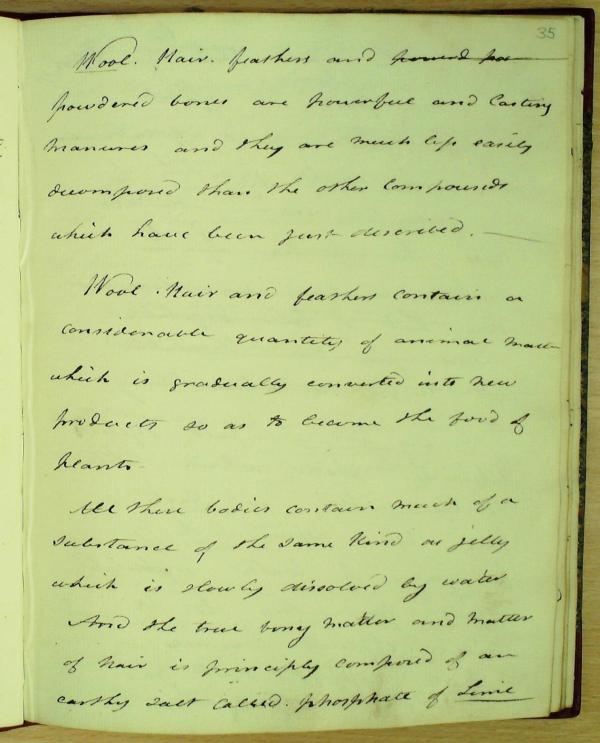 35
Wool. Hair. feathers and powerd po
powdered bones are powerful and lasting
manures and they are much less easily
decomposed than the other compounds
which have been just described. —
Wool. Hair and feathers contain a
considerable quantity of animal matter
which is gradually converted into new
products so as to become the food of
plants
All these bodies contain much of a
substance of the same kind as jelly
which is slowly dissolved by water
And the true bony matter and matter
of hair is principly composed of an
earthy salt called. phosphate of Lime